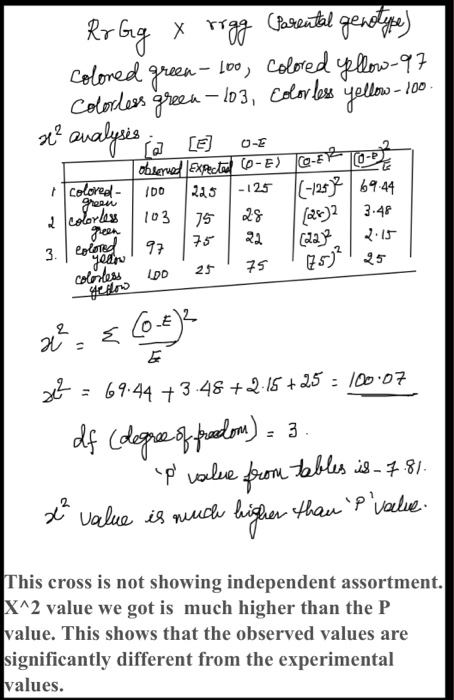 RrGg x rrgg (Parental genotype)
Colored green - 100, Colored yellow - 97
Colorless green - 103, Colorless yellow - 100.
x² analysis:
[o] [E] O-E
observed Expected (O-E) (O-E)² (O-E)²/E
1 colored-green 100 225 -125 (-125)² 69.44
2 colorless green 103 75 28 (28)² 3.48
3. colored yellow 97 75 22 (22)² 2.15
colorless yellow 100 25 75 (75)² 25
x² = Σ (O-E)²/E
x² = 69.44 + 3.48 + 2.15 + 25 = 100.07
df (degree of freedom) = 3.
'p' value from tables is - 7.81.
x² value is much higher than 'P' value.
This cross is not showing independent assortment.
X^2 value we got is much higher than the P
value. This shows that the observed values are
significantly different from the experimental
values.